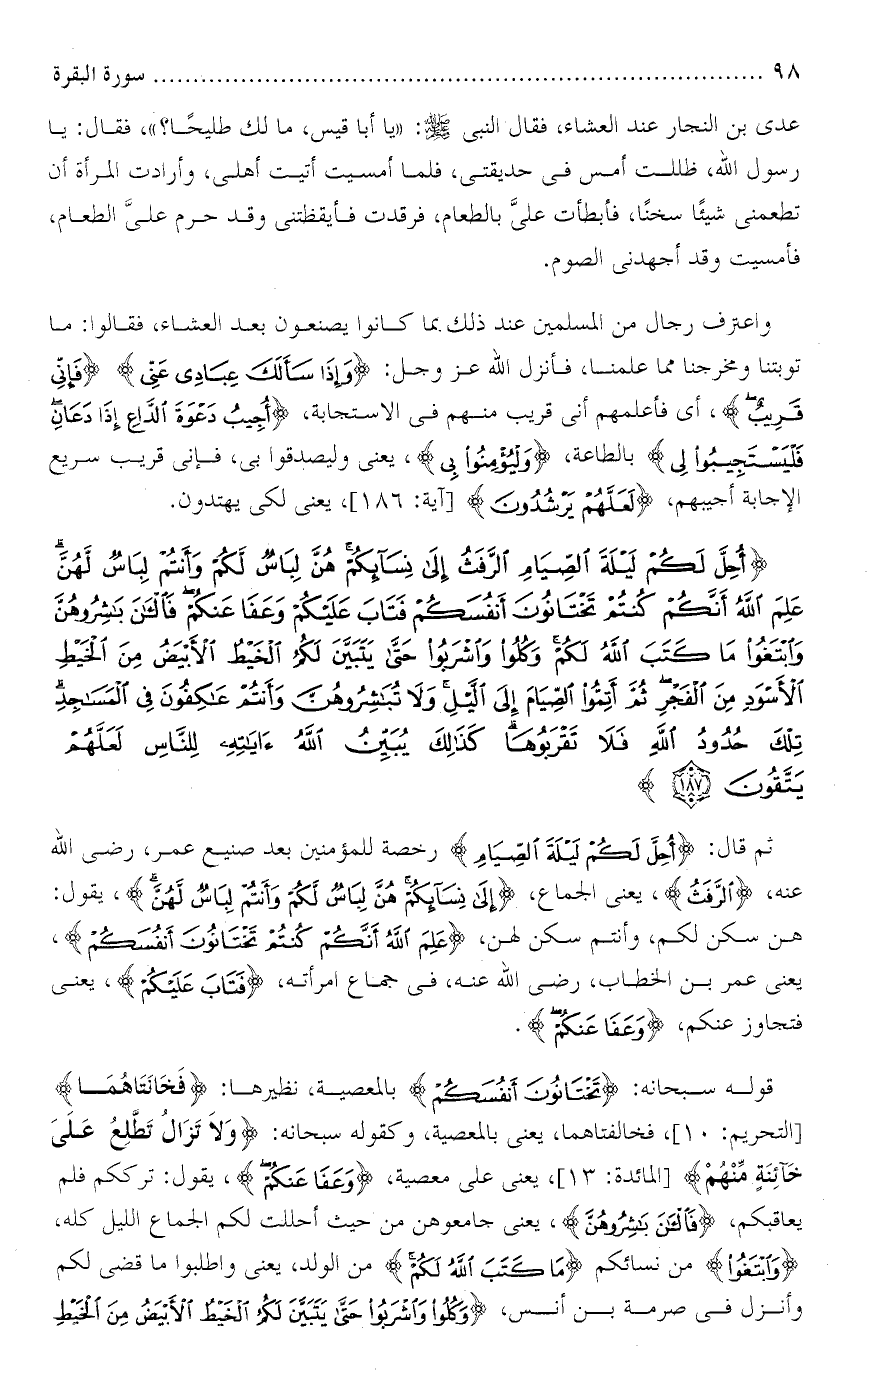 ٩٨ ........................................................................ سورة البقرة
عدى بن النجار عند العشاء، فقال النبى ﷺ: «يا أبا قيس، ما لك طليحًا؟»، فقال: يا
رسول الله، ظللت أمس فى حديقتى، فلما أمسيت أتيت أهلى، وأرادت المرأة أن
تطعمنى شيئًا سخنًا، فأبطأت علىَّ بالطعام، فرقدت فأيقظتنى وقد حرم علىَّ الطعام،
فأمسيت وقد أجهدنى الصوم.
واعترف رجال من المسلمين عند ذلك بما كانوا يصنعون بعد العشاء، فقالوا: ما
توبتنا ومخرجنا مما علمنا، فأنزل الله عز وجل: ﴿وَإِذَا سَأَلَكَ عِبَادِى عَنِّى﴾ ﴿فَإِنِّى
قَرِيبٌ﴾، أى فأعلمهم أنى قريب منهم فى الاستجابة، ﴿أُجِيبُ دَعْوَةَ ٱلدَّاعِ إِذَا دَعَانِ ۖ
فَلْيَسْتَجِيبُوا۟ لِى﴾ بالطاعة، ﴿وَلْيُؤْمِنُوا۟ بِى﴾، يعنى وليصدقوا بى، فإنى قريب سريع
الإجابة أجيبهم، ﴿لَعَلَّهُمْ يَرْشُدُونَ﴾ [آية: ١٨٦]، يعنى لكى يهتدون.
﴿أُحِلَّ لَكُمْ لَيْلَةَ ٱلصِّيَامِ ٱلرَّفَثُ إِلَىٰ نِسَآئِكُمْ ۚ هُنَّ لِبَاسٌ لَّكُمْ وَأَنتُمْ لِبَاسٌ لَّهُنَّ ۗ
عَلِمَ ٱللَّهُ أَنَّكُمْ كُنتُمْ تَخْتَانُونَ أَنفُسَكُمْ فَتَابَ عَلَيْكُمْ وَعَفَا عَنكُمْ ۖ فَٱلْـَٰٔنَ بَـٰشِرُوهُنَّ
وَٱبْتَغُوا۟ مَا كَتَبَ ٱللَّهُ لَكُمْ ۚ وَكُلُوا۟ وَٱشْرَبُوا۟ حَتَّىٰ يَتَبَيَّنَ لَكُمُ ٱلْخَيْطُ ٱلْأَبْيَضُ مِنَ ٱلْخَيْطِ
ٱلْأَسْوَدِ مِنَ ٱلْفَجْرِ ۖ ثُمَّ أَتِمُّوا۟ ٱلصِّيَامَ إِلَى ٱلَّيْلِ ۚ وَلَا تُبَـٰشِرُوهُنَّ وَأَنتُمْ عَـٰكِفُونَ فِى ٱلْمَسَـٰجِدِ ۗ
تِلْكَ حُدُودُ ٱللَّهِ فَلَا تَقْرَبُوهَا ۗ كَذَٰلِكَ يُبَيِّنُ ٱللَّهُ ءَايَـٰتِهِۦ لِلنَّاسِ لَعَلَّهُمْ
يَتَّقُونَ ١٨٧﴾
ثم قال: ﴿أُحِلَّ لَكُمْ لَيْلَةَ ٱلصِّيَامِ﴾ رخصة للمؤمنين بعد صنيع عمر، رضى الله
عنه، ﴿ٱلرَّفَثُ﴾، يعنى الجماع، ﴿إِلَىٰ نِسَآئِكُمْ ۚ هُنَّ لِبَاسٌ لَّكُمْ وَأَنتُمْ لِبَاسٌ لَّهُنَّ ۗ﴾، يقول:
هن سكن لكم، وأنتم سكن لهن، ﴿عَلِمَ ٱللَّهُ أَنَّكُمْ كُنتُمْ تَخْتَانُونَ أَنفُسَكُمْ﴾،
يعنى عمر بن الخطاب، رضى الله عنه، فى جماع امرأته، ﴿فَتَابَ عَلَيْكُمْ﴾، يعنى
فتجاوز عنكم، ﴿وَعَفَا عَنكُمْ ۖ﴾.
قوله سبحانه: ﴿تَخْتَانُونَ أَنفُسَكُمْ﴾ بالمعصية، نظيرها: ﴿فَخَانَتَاهُمَا﴾
[التحريم: ١٠]، فخالفتاهما، يعنى بالمعصية، وكقوله سبحانه: ﴿وَلاَ تَزَالُ تَطَّلِعُ عَلَىَ
خَآئِنَةٍ مِّنْهُمْ﴾ [المائدة: ١٣]، يعنى على معصية، ﴿وَعَفَا عَنكُمْ ۖ﴾، يقول: ترككم فلم
يعاقبكم، ﴿فَٱلْـَٰٔنَ بَـٰشِرُوهُنَّ﴾، يعنى جامعوهن من حيث أحللت لكم الجماع الليل كله،
﴿وَٱبْتَغُوا۟﴾ من نسائكم ﴿مَا كَتَبَ ٱللَّهُ لَكُمْ ۚ﴾ من الولد، يعنى واطلبوا ما قضى لكم
وأنزل فى صرمة بن أنس، ﴿وَكُلُوا۟ وَٱشْرَبُوا۟ حَتَّىٰ يَتَبَيَّنَ لَكُمُ ٱلْخَيْطُ ٱلْأَبْيَضُ مِنَ ٱلْخَيْطِ